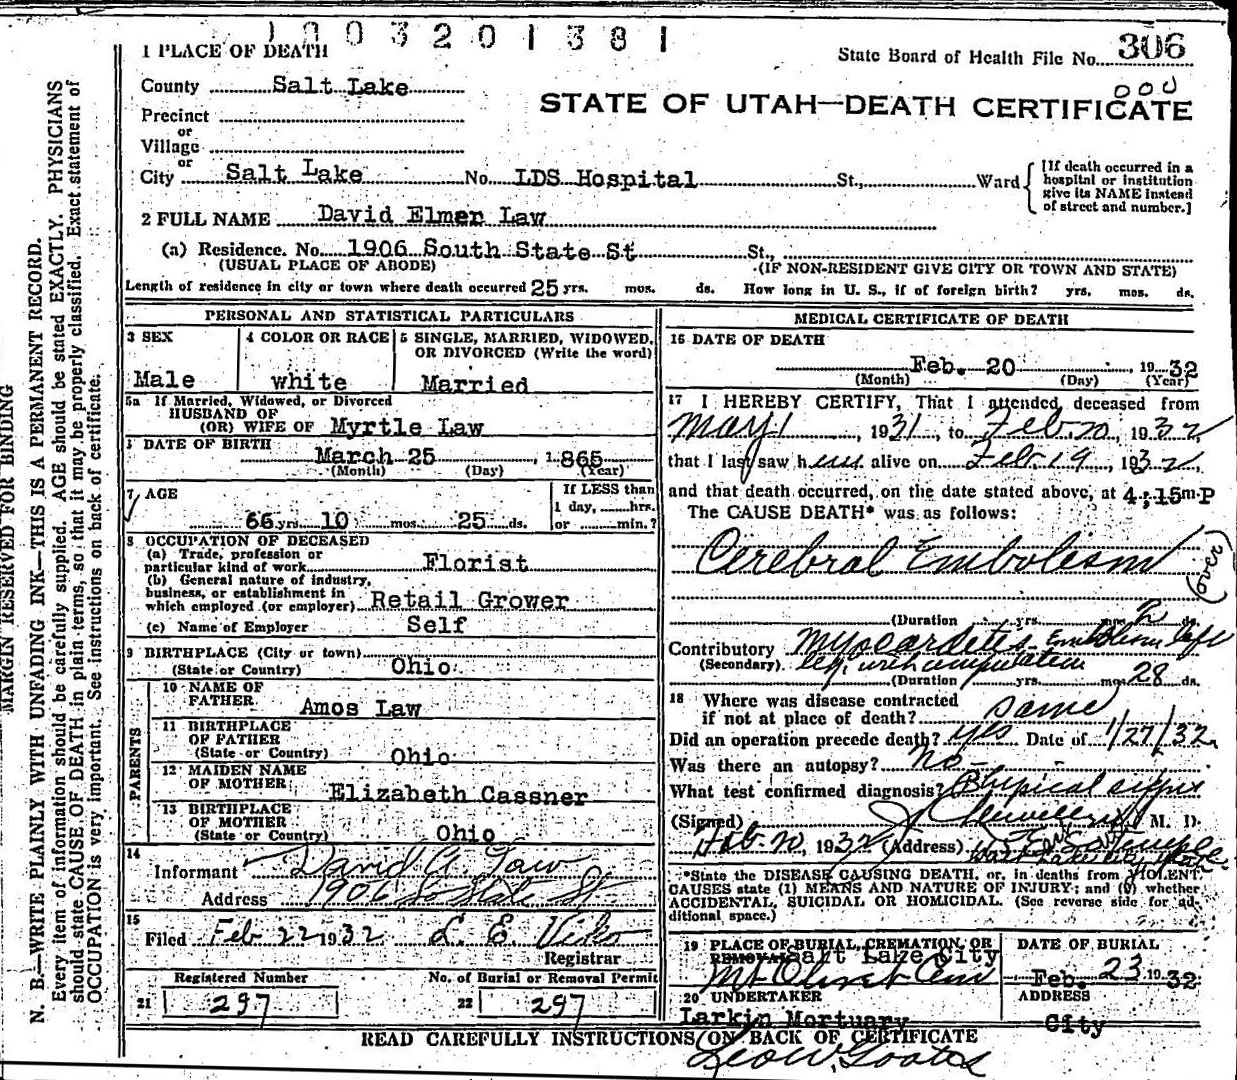 1003201381
1 PLACE OF DEATH
State Board of Health File No. 306
000
County Salt Lake
STATE OF UTAH—DEATH CERTIFICATE
Precinct
or
Village
or
City Salt Lake No. LDS Hospital St., Ward
[If death occurred in a
hospital or institution
give its NAME instead
of street and number.]
2 FULL NAME David Elmer Law
(a) Residence. No. 1906 South State St St.,
(USUAL PLACE OF ABODE) (IF NON-RESIDENT GIVE CITY OR TOWN AND STATE)
Length of residence in city or town where death occurred 25 yrs. mos. ds. How long in U. S., if of foreign birth? yrs. mos. ds.
PERSONAL AND STATISTICAL PARTICULARS
3 SEX
Male
4 COLOR OR RACE
white
5 SINGLE, MARRIED, WIDOWED,
OR DIVORCED (Write the word)
Married
5a If Married, Widowed, or Divorced
HUSBAND OF
(OR) WIFE OF Myrtle Law
DATE OF BIRTH
March 25 , 1865
(Month) (Day) (Year)
7 AGE
66 yrs 10 mos. 25 ds.
If LESS than
1 day, hrs.
or min.?
8 OCCUPATION OF DECEASED
(a) Trade, profession or
particular kind of work Florist
(b) General nature of industry,
business, or establishment in
which employed (or employer) Retail Grower
(c) Name of Employer Self
9 BIRTHPLACE (City or town)
(State or Country) Ohio
PARENTS
10 NAME OF
FATHER Amos Law
11 BIRTHPLACE
OF FATHER
(State or Country) Ohio
12 MAIDEN NAME
OF MOTHER Elizabeth Cassner
13 BIRTHPLACE
OF MOTHER
(State or Country) Ohio
14
Informant David A Law
Address 1906 So State St
15
Filed Feb 22 1932 L. E. Viko
Registrar
Registered Number
21 297
No. of Burial or Removal Permit
22 297
MEDICAL CERTIFICATE OF DEATH
16 DATE OF DEATH
Feb. 20 , 1932
(Month) (Day) (Year)
17 I HEREBY CERTIFY, That I attended deceased from
May 1 , 1931, to Feb. 20, 1932,
that I last saw him alive on Feb. 19, 1932,
and that death occurred, on the date stated above, at 4;15m P
The CAUSE DEATH* was as follows:
Cerebral Embolism
(over)
(Duration yrs. mos. 2 ds.
Contributory Myocardetis - Embolism left
(Secondary) leg. with amputation
(Duration yrs. mos. 28 ds.
18 Where was disease contracted
if not at place of death? same
Did an operation precede death? yes Date of 1/27/32
Was there an autopsy? No
What test confirmed diagnosis? Physical signs
(Signed) M. D.
Feb. 20, 1932 (Address)
*State the DISEASE CAUSING DEATH, or, in deaths from VIOLENT
CAUSES state (1) MEANS AND NATURE OF INJURY; and (2) whether
ACCIDENTAL, SUICIDAL OR HOMICIDAL. (See reverse side for ad-
ditional space.)
19 PLACE OF BURIAL, CREMATION, OR
REMOVAL Salt Lake City
Mt Olivet Cem
DATE OF BURIAL
Feb. 23 1932
20 UNDERTAKER
Larkin Mortuary
ADDRESS
City
READ CAREFULLY INSTRUCTIONS ON BACK OF CERTIFICATE
MARGIN RESERVED FOR BINDING
N. B.—WRITE PLAINLY WITH UNFADING INK—THIS IS A PERMANENT RECORD.
Every item of information should be carefully supplied. AGE should be stated EXACTLY. PHYSICIANS
should state CAUSE OF DEATH in plain terms, so that it may be properly classified. Exact statement of
OCCUPATION is very important. See instructions on back of certificate.